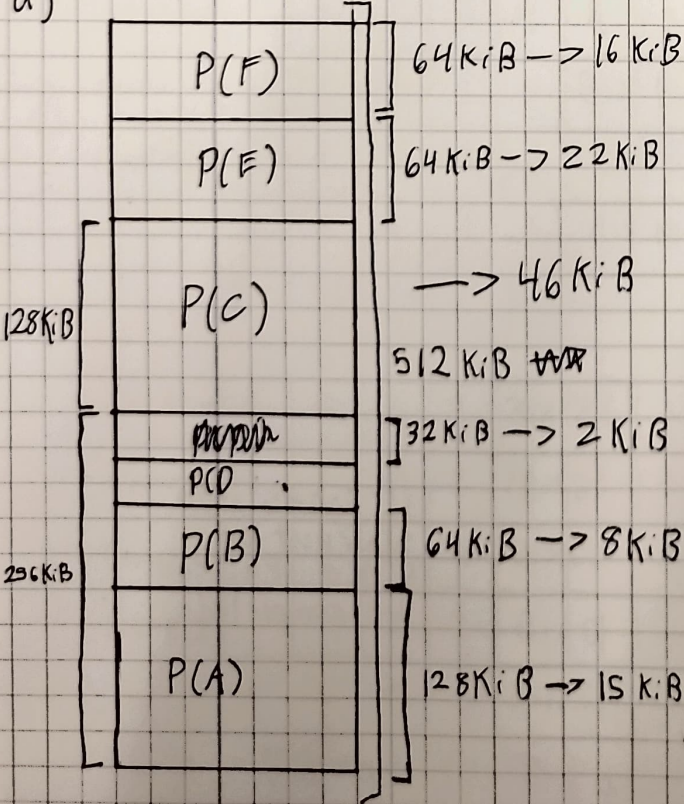 a)
P(F) 64KiB -> 16 KiB
P(E) 64KiB -> 22KiB
128KiB P(C) -> 46 KiB
512 KiB
32KiB -> 2 KiB
P(D
P(B) 64KiB -> 8KiB
296KiB
P(A) 128KiB -> 15 KiB